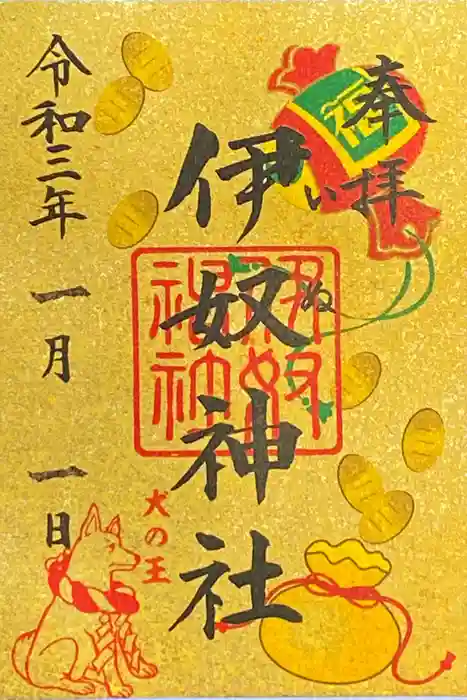 奉拝
福
いぬ
伊奴神社
伊奴
神社
犬の王
令和三年一月一日